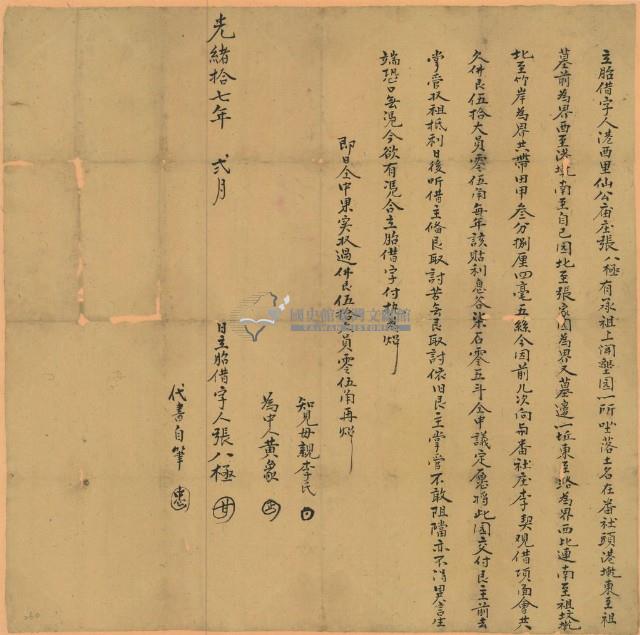 立胎借字人港西里仙公庙庄張八極有承祖上開墾園一所坐落土名在番社頭港墘東至祖
墓前為界西至港墘南至自己园北至張家园為界又墓邊一坵東至路為界西北連南至祖坟墘
北至竹岸為界共帶田甲叁分捌厘四毫五絲今因前几次向与番社庄李契观借項面會共
欠佛艮伍拾大員零伍角每年該貼利息谷柒石零五斗仝中議定愿將此園交付艮主前去
掌管収祖抵利日後听借主俻艮取討苦無艮取討依旧艮主掌管不敢阻擋亦不滋異言生
端恐口無凭今欲有凭合立胎借字付执為炤
即日仝中果实収過佛艮伍拾大員零伍角再炤
知見母親李氏
為中人黃象
光緒拾七年 弍月 日立胎借字人張八極
代書自筆
國史館臺灣文獻館
TAIWAN HISTORICA